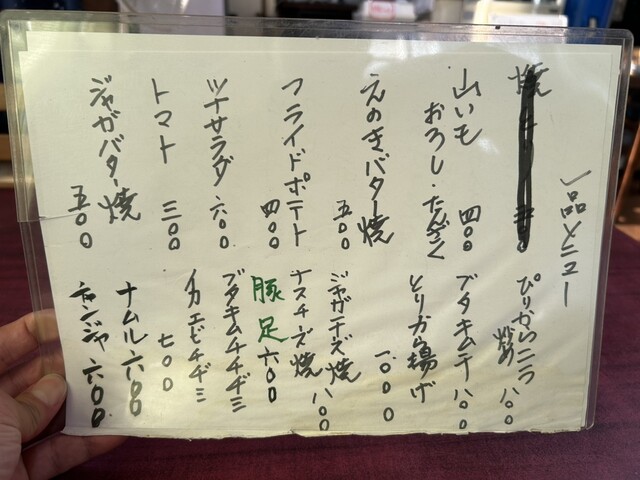 一品メニュー
山いも
おろし・たんざく
四〇〇
えのきバター焼
五〇〇
フライドポテト
四〇〇
ツナサラダ 六〇〇
トマト 三〇〇
ジャガバター焼
五〇〇
ぴりからニラ
炒め 八〇〇
ブタキムチ 八〇〇
とりから揚げ
一〇〇〇
ジャガチーズ焼
ナスチーズ焼 八〇〇
豚足 六〇〇
ブタキムチチヂミ
イカエビチヂミ
七〇〇
ナムル 六〇〇
チャンジャ 六〇〇